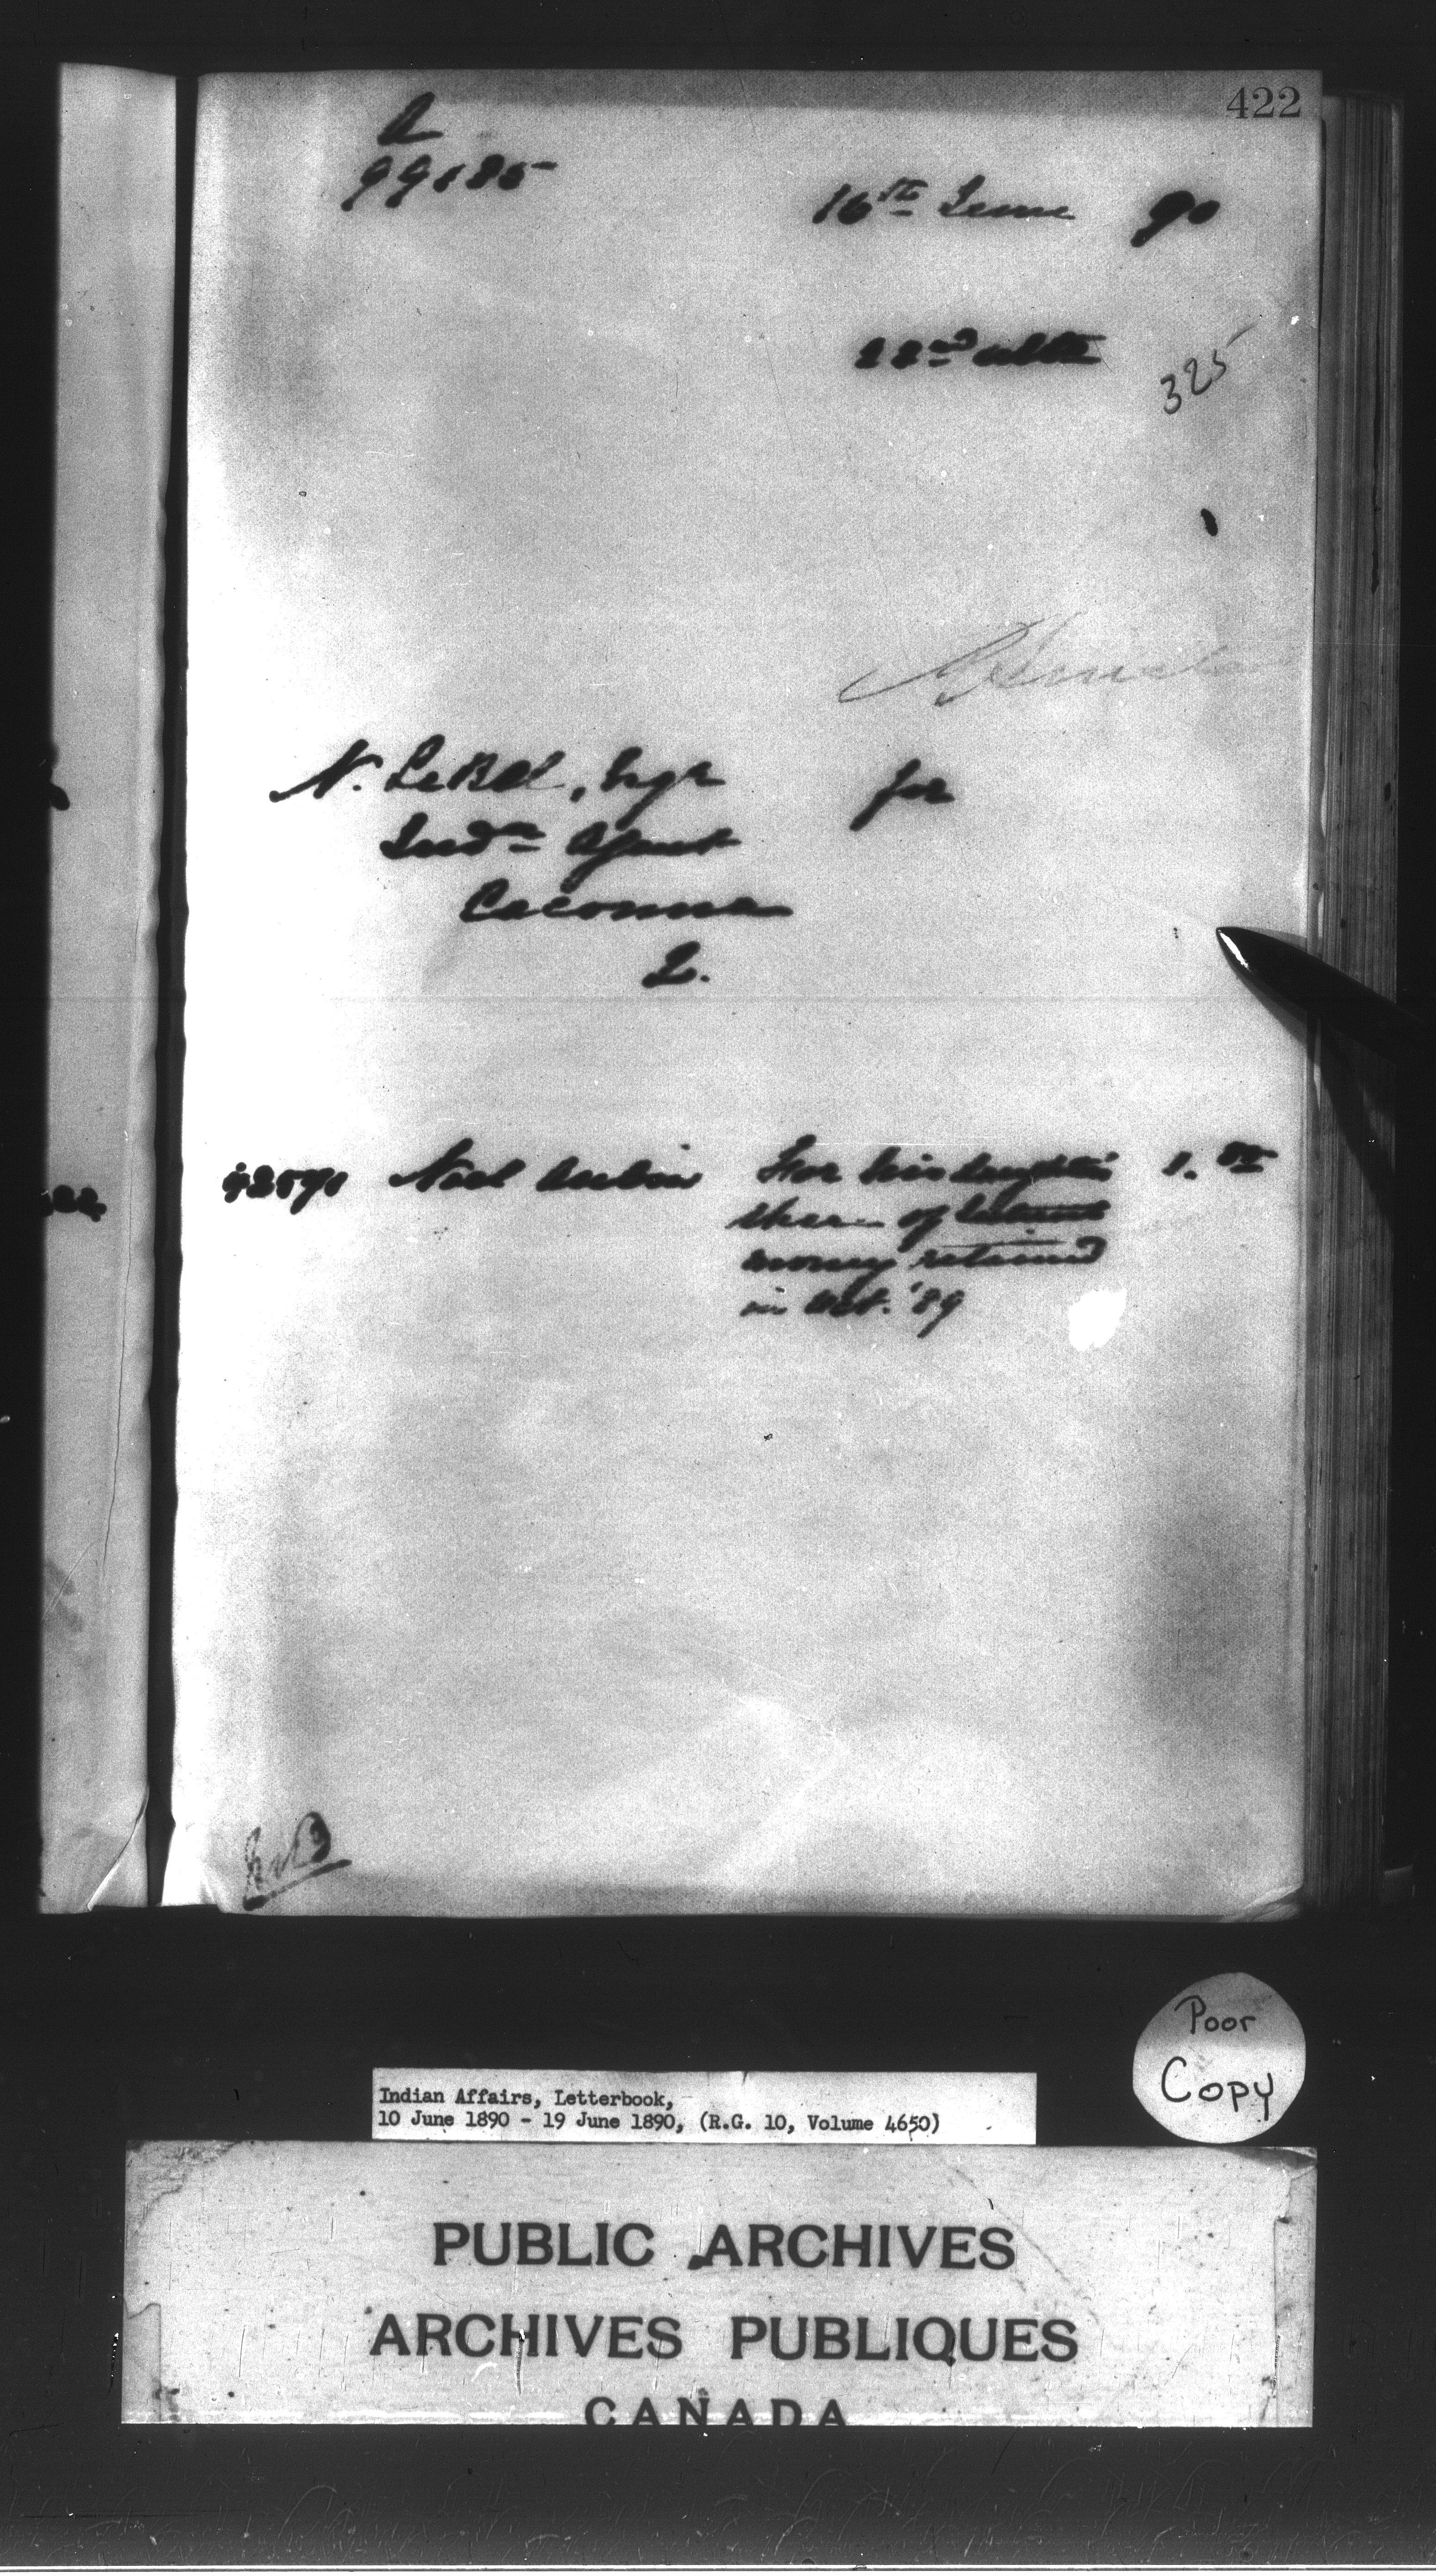 422
99185
16th June 90
22nd ulto
325
N. LeBel, Esqr for
Indn Agent
Cacouna
Q.
Noel Aubin For his daughter's 1.
share of
money returned
in Oct. '89
Poor
Copy
Indian Affairs, Letterbook,
10 June 1890 - 19 June 1890, (R.G. 10, Volume 4650)
PUBLIC ARCHIVES
ARCHIVES PUBLIQUES
CANADA